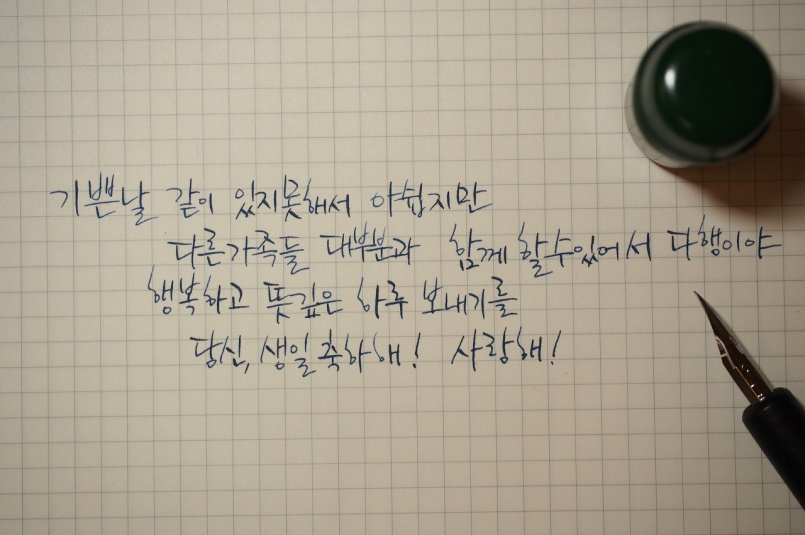 기쁜날 같이 있지못해서 아쉽지만
다른가족들 대부분과 함께 할수있어서 다행이야
행복하고 뜻깊은 하루 보내기를
당신, 생일 축하해! 사랑해!